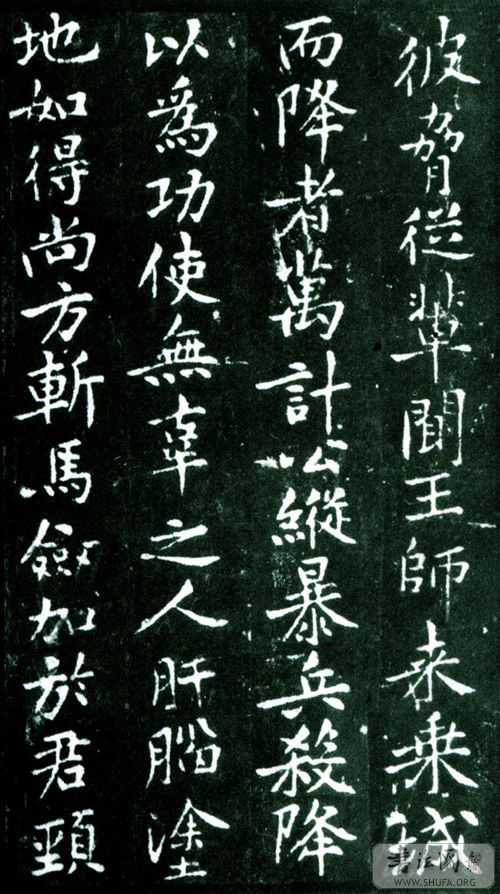 彼脅從輩聞王師来乗城
而降者萬計公縱暴兵殺降
以爲功使無辜之人肝腦塗
地如得尚方斬馬劍加於君頸
WWW.SHUFA.ORG